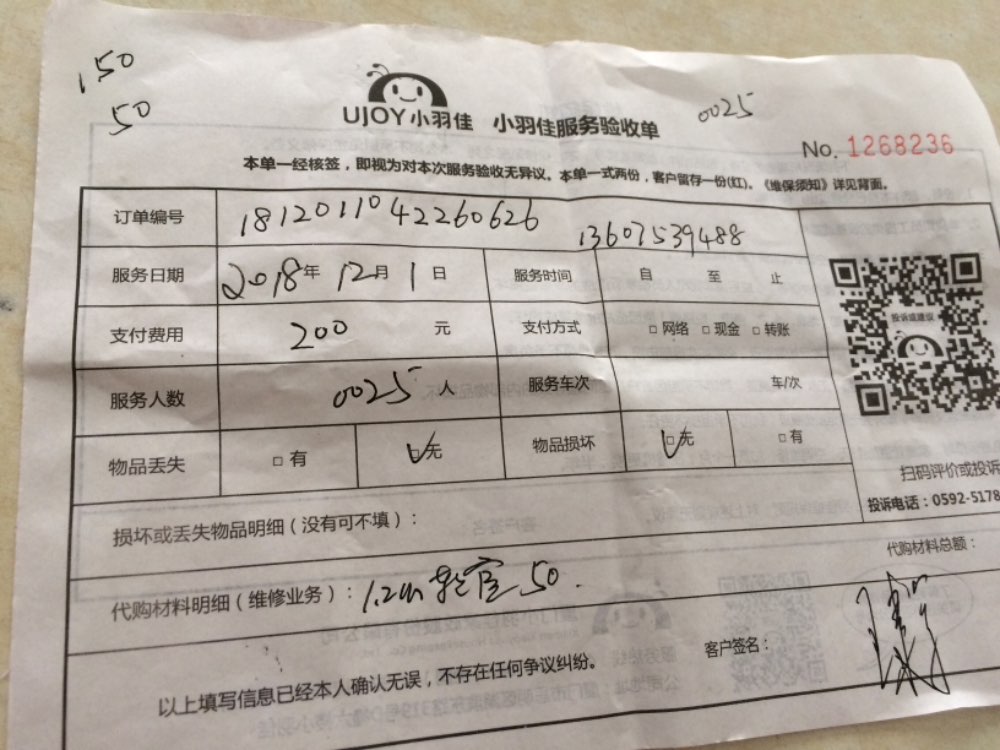 150
50
UJOY小羽佳 小羽佳服务验收单
0025
No. 1268236
本单一经核签，即视为对本次服务验收无异议。本单一式两份，客户留存一份(红)。《维保须知》详见背面。
订单编号 1812011042260626 13607539488
服务日期 2018年 12月 1日 服务时间 自 至 止
支付费用 200 元 支付方式 □网络 □现金 □转账
服务人数 0025人 服务车次 车/次
物品丢失 □有 □无 物品损坏 □无 □有
投诉或建议
扫码评价或投诉
投诉电话：0592-5178
损坏或丢失物品明细（没有可不填）：
代购材料总额：
代购材料明细（维修业务）：1.2m 软管 50.
客户签名：
以上填写信息已经本人确认无误，不存在任何争议纠纷。